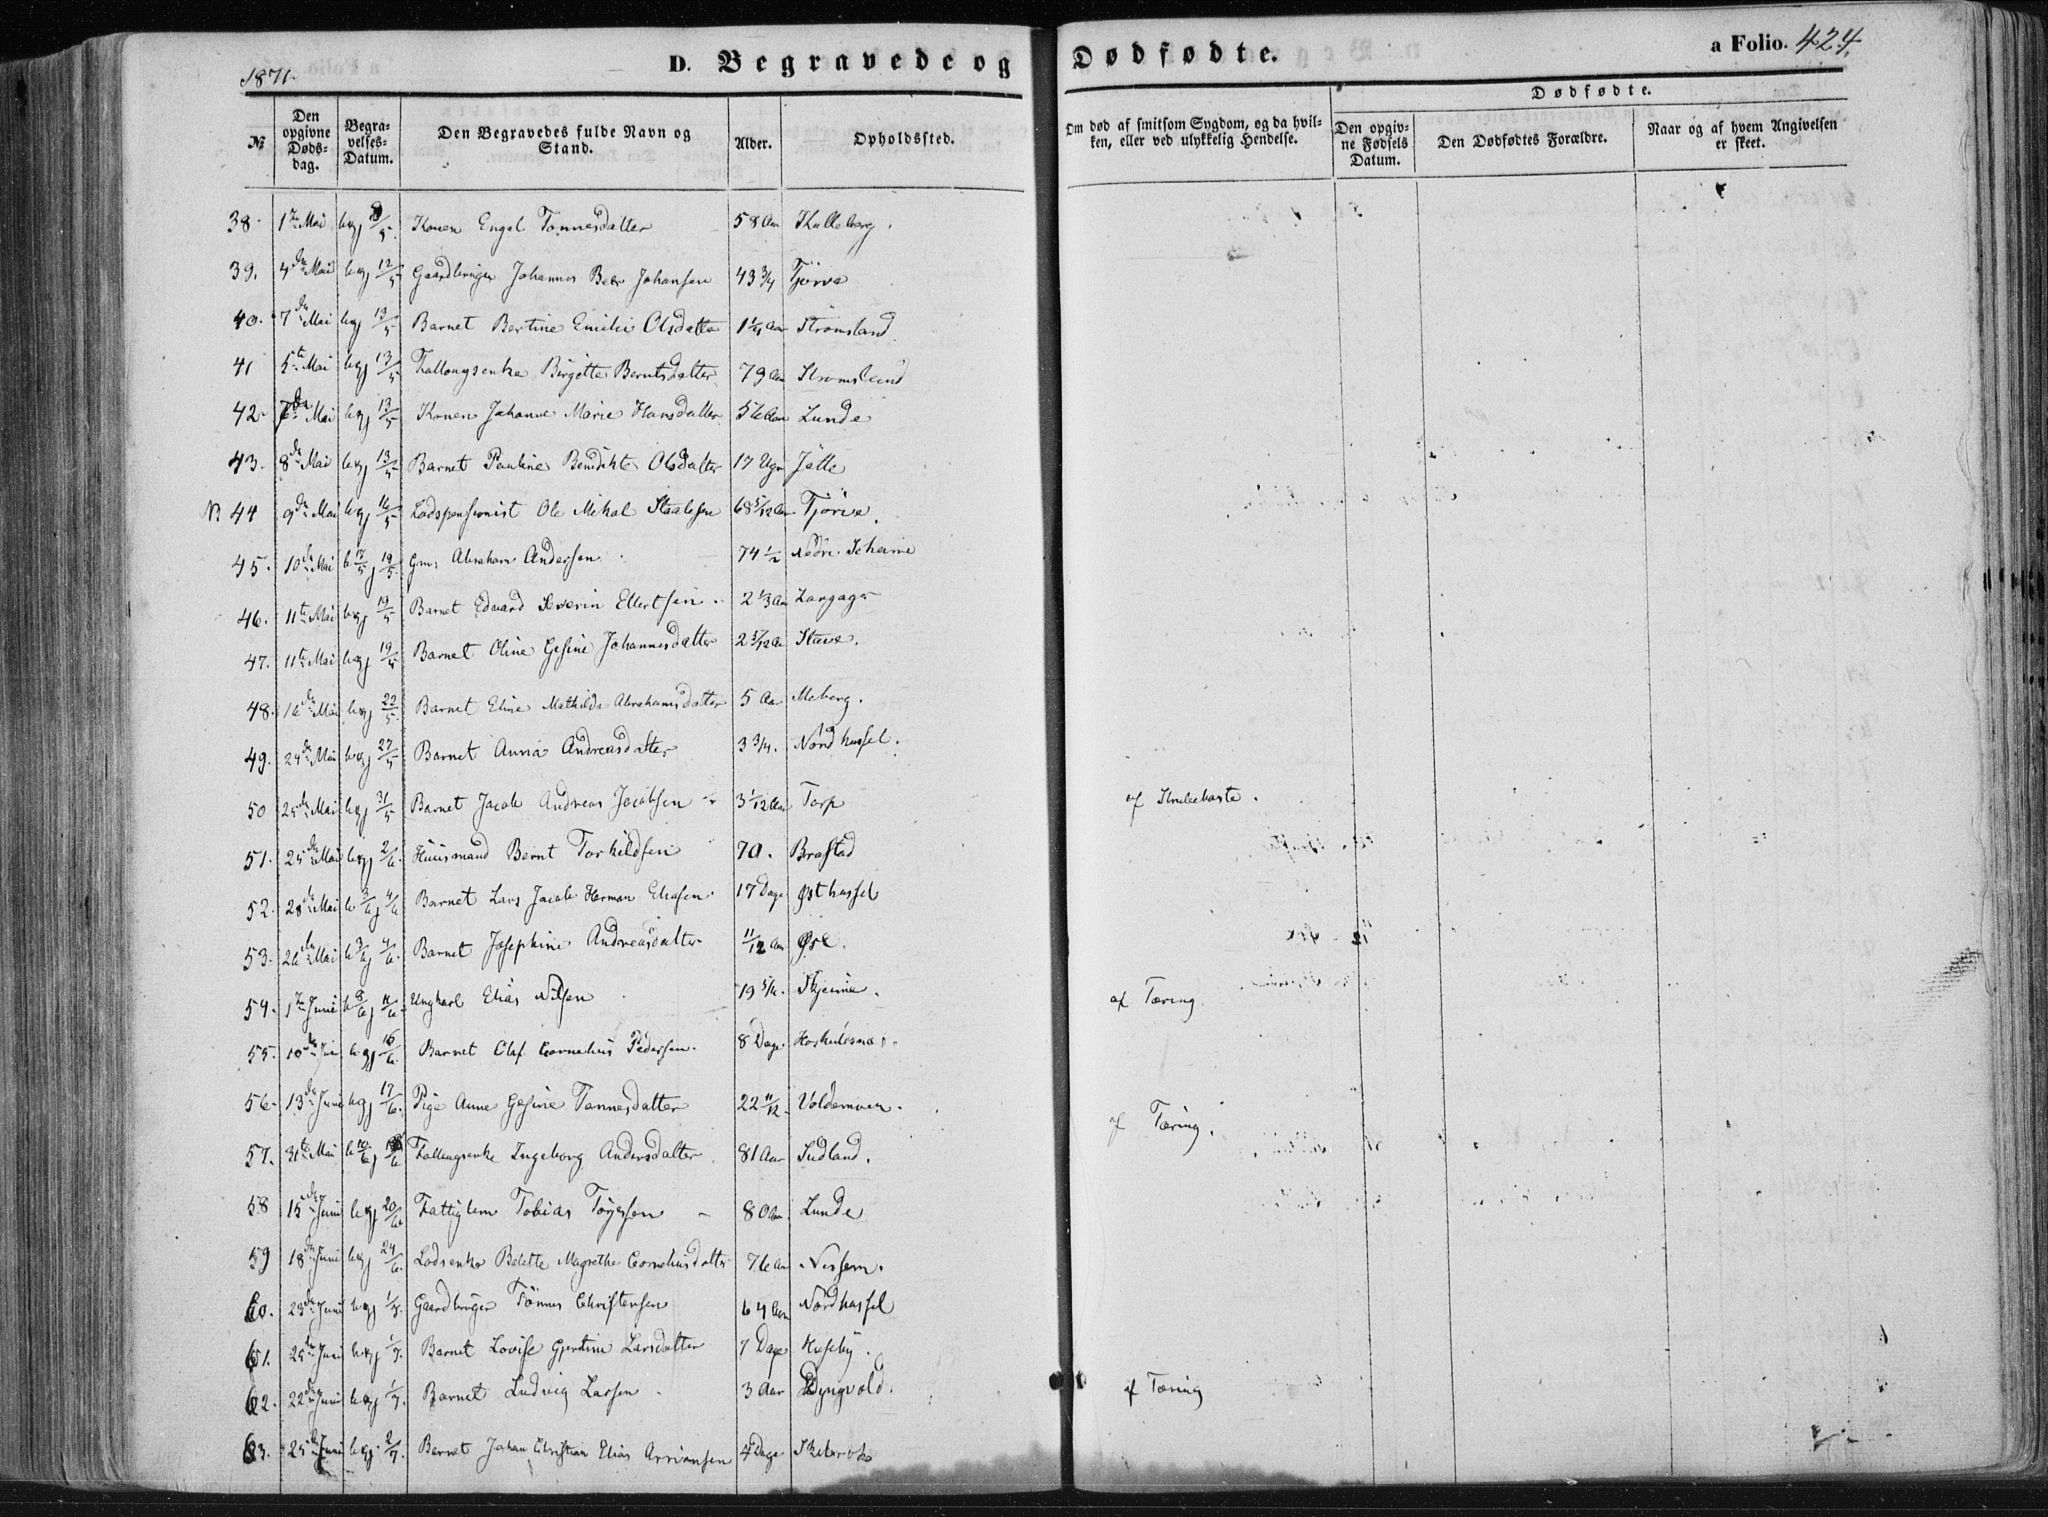 1871.
D. Begravede og Dødfødte.
a Folio. 424
№
Den opgivne Døds-dag.
Begra-velses-Datum.
Den Begravedes fulde Navn og Stand.
Alder.
Opholdssted.
Om død af smitsom Sygdom, og da hvil-ken, eller ved ulykkelig Hendelse.
Dødfødte.
Den opgiv-ne Fødsels Datum.
Den Dødfødtes Forældre.
Naar og af hvem Angivelsen er skeet.
38. 1ste Mai Konen Engel Tønnesdatter 58 Aar Kalleberg.
39. 4de Mai begj 12/5 Gaardbruger Johannes Beer Johansen 43 3/4 Tjörve
40. 7de Mai begj 13/5 Barnet Bertine Emilie Olsdatter 1 1/4 Aar Strömsland
41 5te Mai begj 13/5 Birgitte Berntsdatter 79 Aar Strømsland
42. 7de Mai begj 13/5 Konen Johanne Marie Hansdatter 56 Aar Lunde
43. 8de Mai begj 13/5 Barnet Pauline Bendikte Olsdatter 17 Ugr Jölle
№ 44 9de Mai begj 16/5 Lodspensionist Ole Mikal Staalesen 68 5/12 Aar Tjörve.
45. 10de Mai b 17/5 j 19/5 Gm: Abraham Andersen 74 1/2 Nedre Scheime
46. 11te Mai begj 19/5 Barnet Edvard Severin Ellertsen 2 1/3 Aar Langager
47. 11te Mai begj 19/5 Barnet Oline Gesine Johannesdatter 2 5/12 Aar Stave.
48. 16de Mai begj 23/5 Barnet Eline Mathilde Abrahamsdatter 5 Aar Meberg.
49. 24de Mai begj 27/5 Barnet Anna Andreasdatter 3 3/4. Nordhassel.
50 25de Mai begj 31/5 Barnet Jacob Andreas Jacobsen 3 1/12 Aar Torp af Strubehoste.
51. 25de Mai begj 2/6. Huusmand Bernt Torkildsen 70. Brastad
52. 28de Mai b 3/6 j 4/6 Barnet Lars Jacob Herman Eliasen 17 Dage Østhassel
53. 26de Mai b 3/6 j 4/6. Barnet Josephine Andreasdatter 11/12 Aar Øre.
54. 1ste Juni b 8/6 j 11/6. Ungkarl Elias Nilsen 19 Skjeime. af Tæring
55. 10de Juni begj 16/6. Barnet Olaf Cornelius Pedersen. 8 Dage
56. 13de Juni begj 17/6. Pige Anne Gesine Tønnesdatter 22 11/12. Voldemoen. af Tæring.
57. 31te Mai b 10/6 j Ingeborg Andersdatter 81 Aar Sudland.
58 15de Juni begj 20/6 Fattiglem Tobias Tørjesen 80 Aar. Lunde
59 18de Juni begj 24/6. Lodsenke Belette Magrethe Corneliusdatter 76 Aar
60. 23de Juni begj 1/7. Gaardbruger Tönnes Christensen 64 Aar Nordhassel
61. 25de Juni begj 1/7. Barnet Lovise Gjertine Larsdatter 7 Dage Huseby.
62. 22de Juni begj 1/7. Barnet Ludvig Larsen 3 Aar Dyngvold. af Tæring
63. 25de Juni begj 2/7. Barnet Johan Christian Elias Arriansen 4 Dage